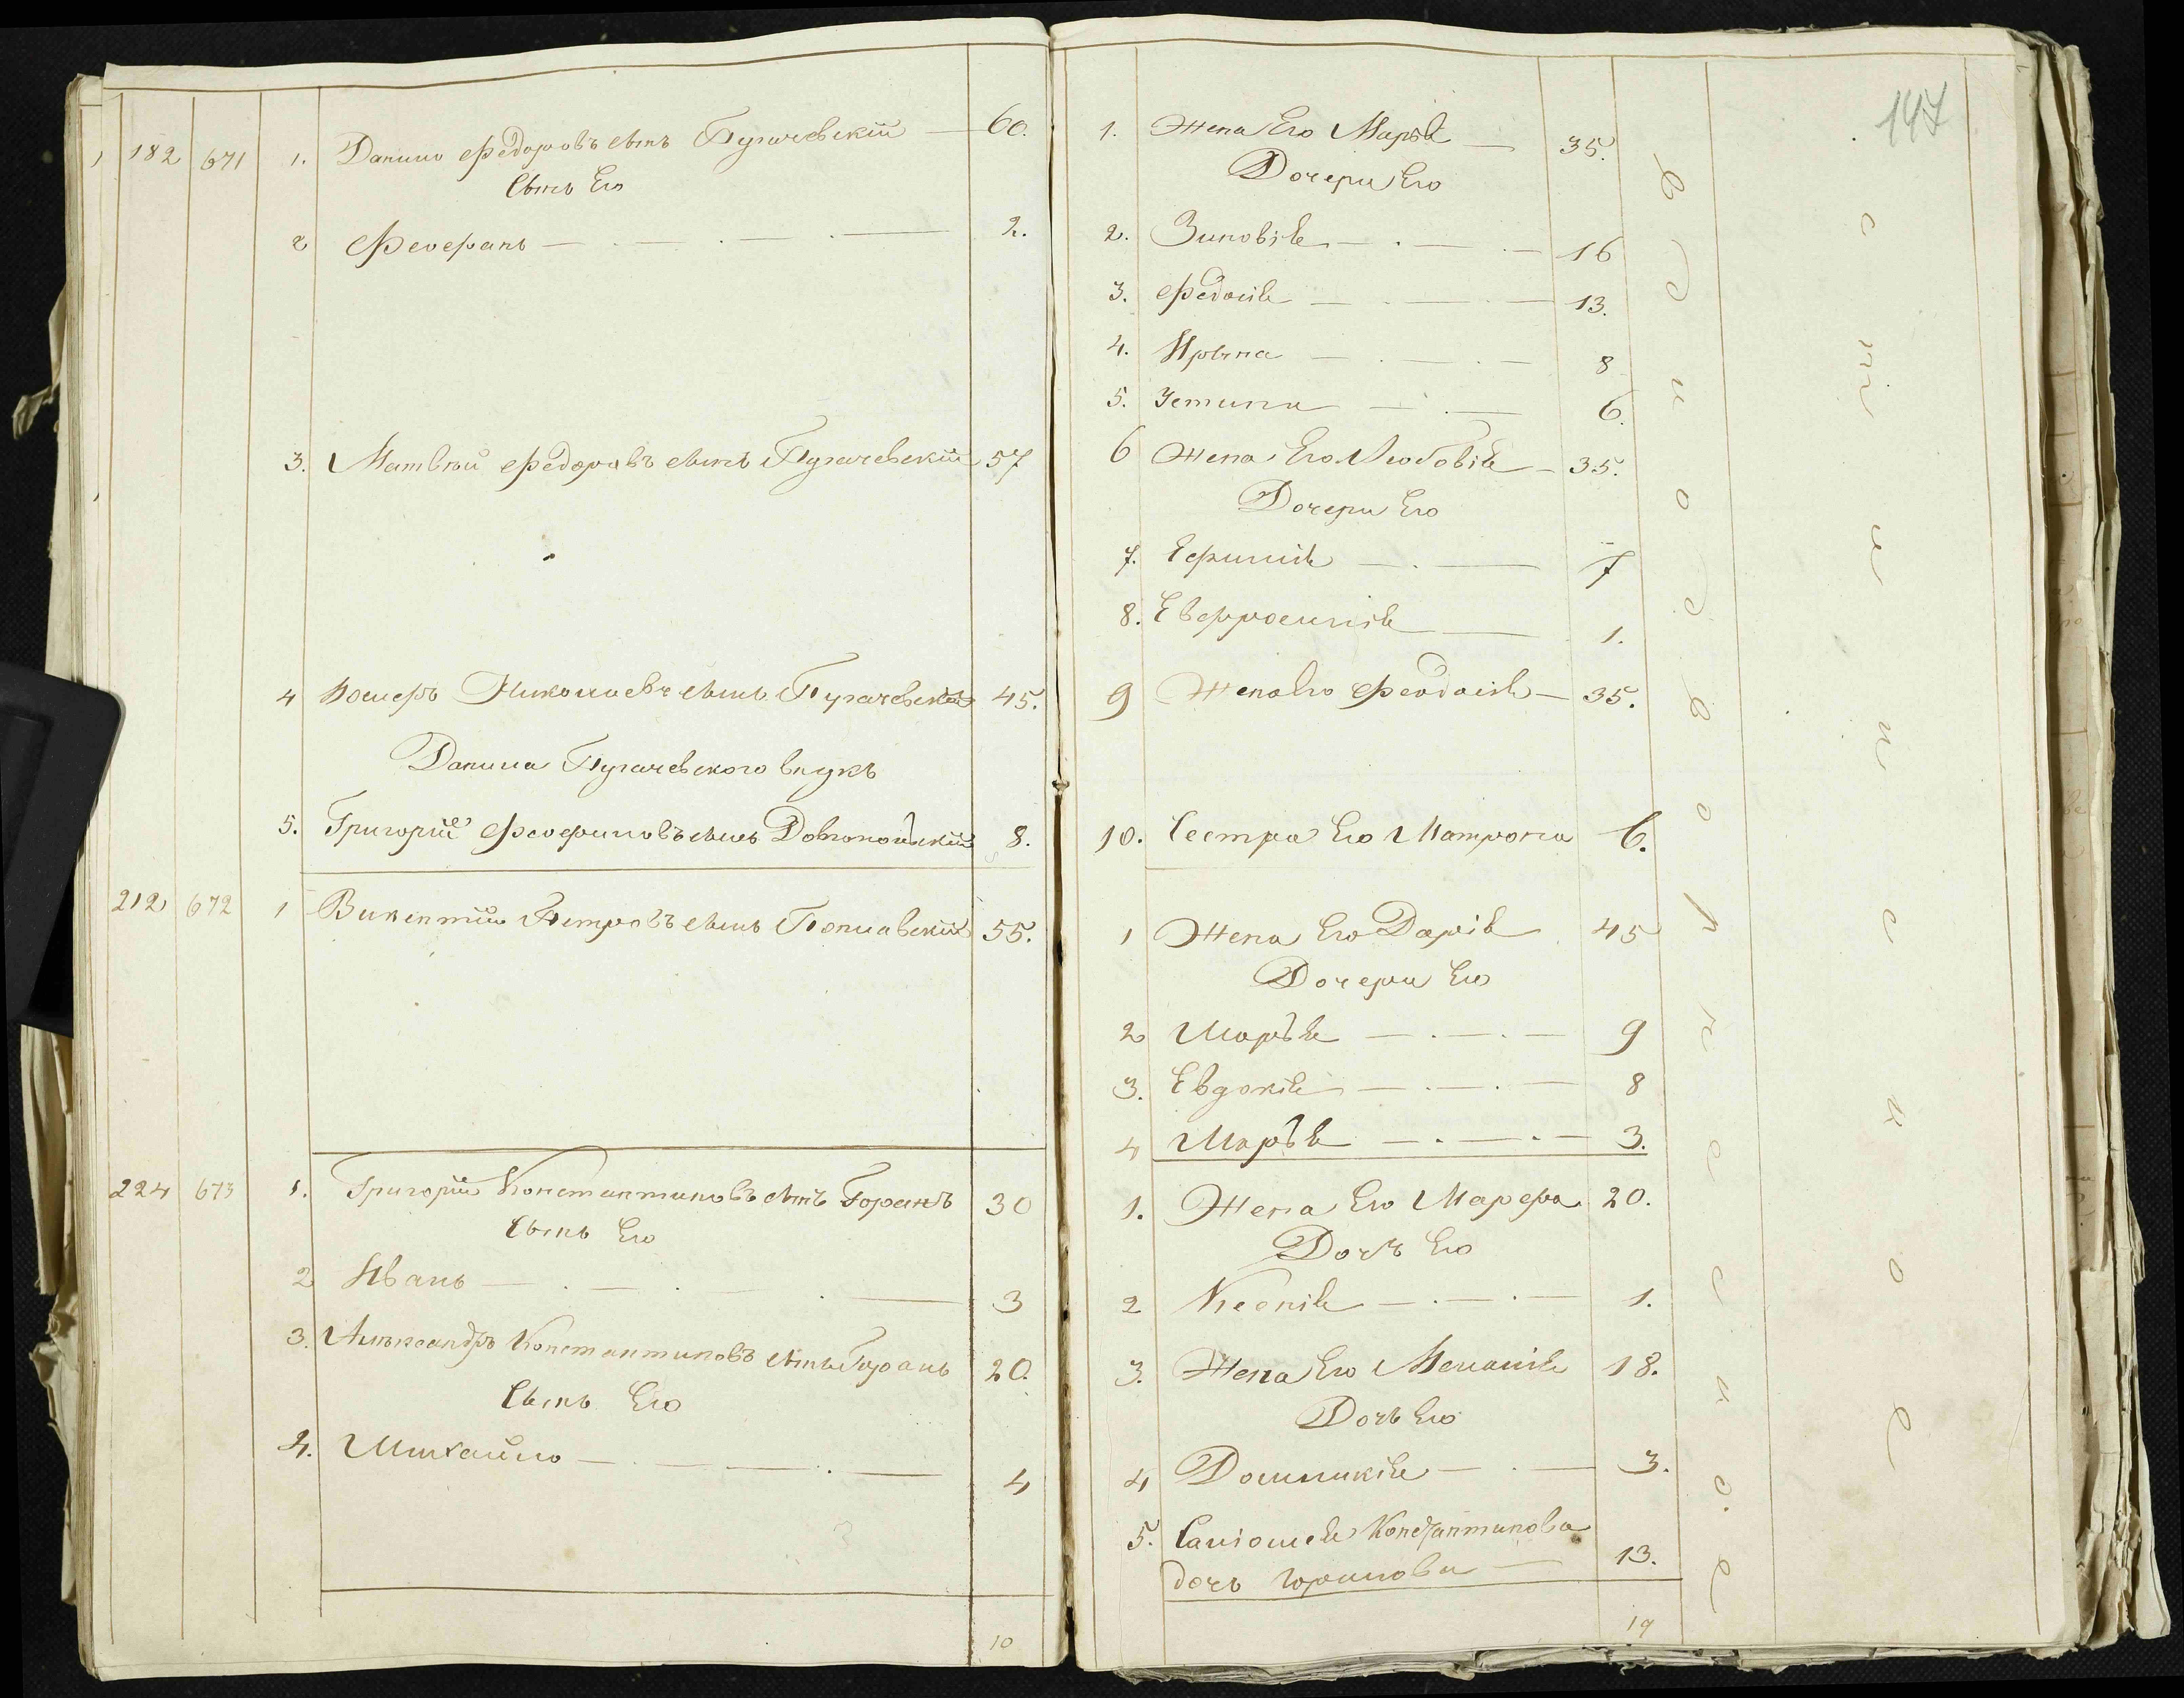 182 671 1. Данило Федоровъ сынъ Пугачевскій — 60.
Сынъ Его
2 Феофанъ — 2.
3. Матвѣй Федоровъ сынъ Пугачевскій 57
4 Іосифъ Николаевъ сынъ Пугачевскій 45.
Данила Пугачевского внукъ
5. Григорій Феофиловъ сынъ 8.
212 672 1 Викентій Петровъ сынъ Поплавскій 55.
224 673 1. Григорій Константиновъ сынъ Горанъ 30
Сынъ Его
2 Иванъ — 3
3. Александръ Константиновъ сынъ Горанъ 20.
Сынъ Его
4. Михайло — 4
10
147
1. Жена Его Марья — 35.
Дочери Его
2. Зиновія — 16
3. Федосія — 13.
4. Ирына — 8
5. Устина — 6.
6 Жена Его Любовія — 35.
Дочери Его
7. Ефимія — 7
8. Евфросинія — 1.
9 Жена Его Феодосія — 35.
10. Сестра Его Матрона 6.
1 Жена Его Дарія 45
Дочери Его
2 Марья — 9
3. Евдокія — 8
4 Марья — 3.
1. Жена Его Марфа 20.
Дочь Его
2 Ксенія — 1.
3. Жена Его Меланія 18.
Дочь Его
4 Доминикія — 3.
5. Константинова
дочь Горанова — 13.
19